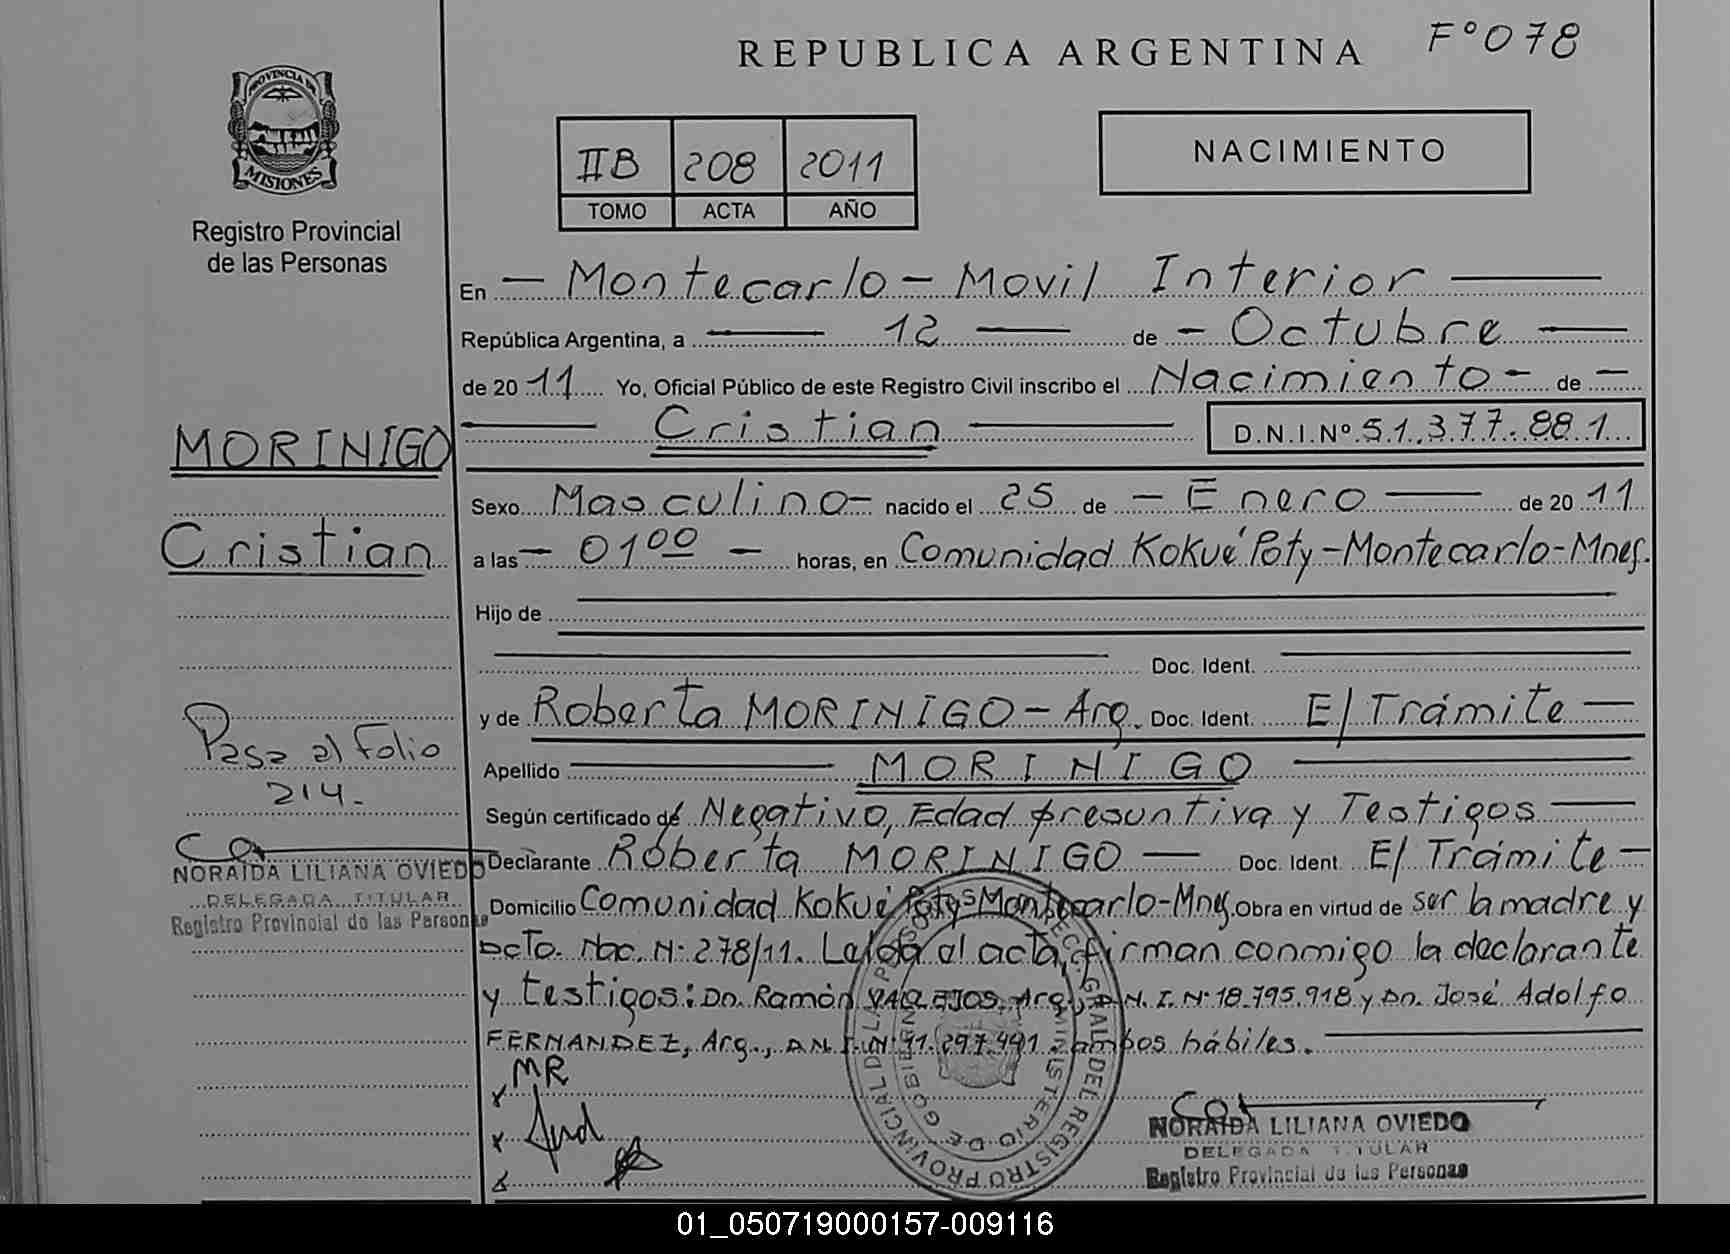 REPUBLICA ARGENTINA
Fº078
PROVINCIA DE
MISIONES
Registro Provincial
de las Personas
IIB 208 2011
TOMO ACTA AÑO
NACIMIENTO
En — Montecarlo - Movil Interior —
República Argentina, a — 12 — de - Octubre —
de 20 11 Yo, Oficial Público de este Registro Civil inscribo el Nacimiento - de —
— Cristian — D.N.I.Nº 51.377.881
MORINIGO
Cristian
Sexo Masculino - nacido el 25 de - Enero — de 20 11
a las - 01 00 - horas, en Comunidad Kokué Poty - Montecarlo - Mnes.
Hijo de
Doc. Ident.
y de Roberta MORINIGO - Arg. Doc. Ident. E/ Trámite —
Apellido — MORINIGO —
Según certificado de Negativo, Edad presuntiva y Testigos —
Declarante Roberta MORINIGO — Doc. Ident. E/ Trámite —
Domicilio Comunidad Kokué Poty - Montecarlo - Mnes. Obra en virtud de ser la madre y
Dcto. Nac. Nº 278/11. Leída el acta, firman conmigo la declarante
y testigos: Dn. Ramón VALLEJOS, Arg., D.N.I. Nº 18.795.918 y Dn. José Adolfo
FERNANDEZ, Arg., D.N.I. Nº 11.297.491. ambos hábiles. —
Pasa al Folio
214.-
NORAIDA LILIANA OVIEDO
DELEGADA TITULAR
Registro Provincial de las Personas
x MR
x
x
NORAIDA LILIANA OVIEDO
DELEGADA TITULAR
Registro Provincial de las Personas
REGISTRO PROVINCIAL DE LAS PERSONAS
MINISTERIO DE GOBIERNO
01_050719000157-009116